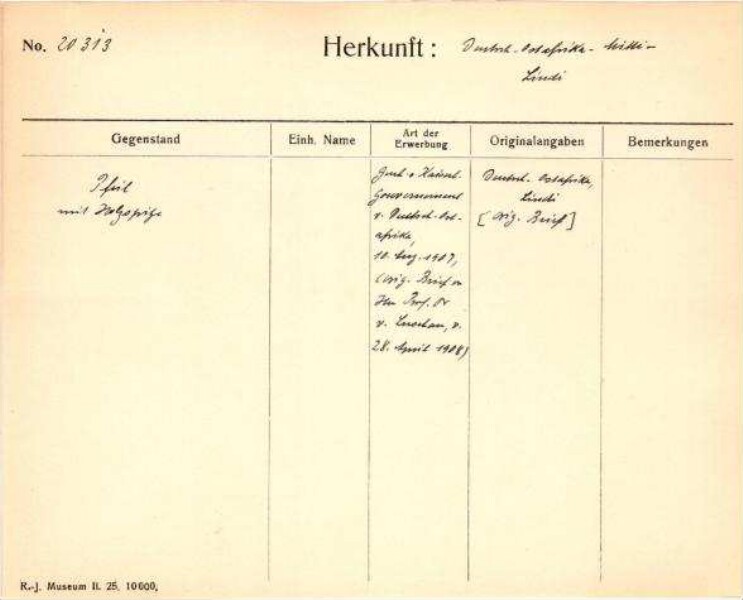 No. 20313 Herkunft: Deutsch-Ostafrika-
Lindi
Gegenstand Einh. Name Art der Erwerbung Originalangaben Bemerkungen
Pfeil
mit Holzspitze
Gesch. v. Kaiserl.
Gouvernement
v. Deutsch-Ost-
afrika,
10. Aug. 1907,
(orig. Brief v.
Hrn Prof. Dr
v. Luschan, v.
28. April 1908)
Deutsch-Ostafrika,
Lindi
[orig. Brief]
R.-J. Museum II. 25. 10000.